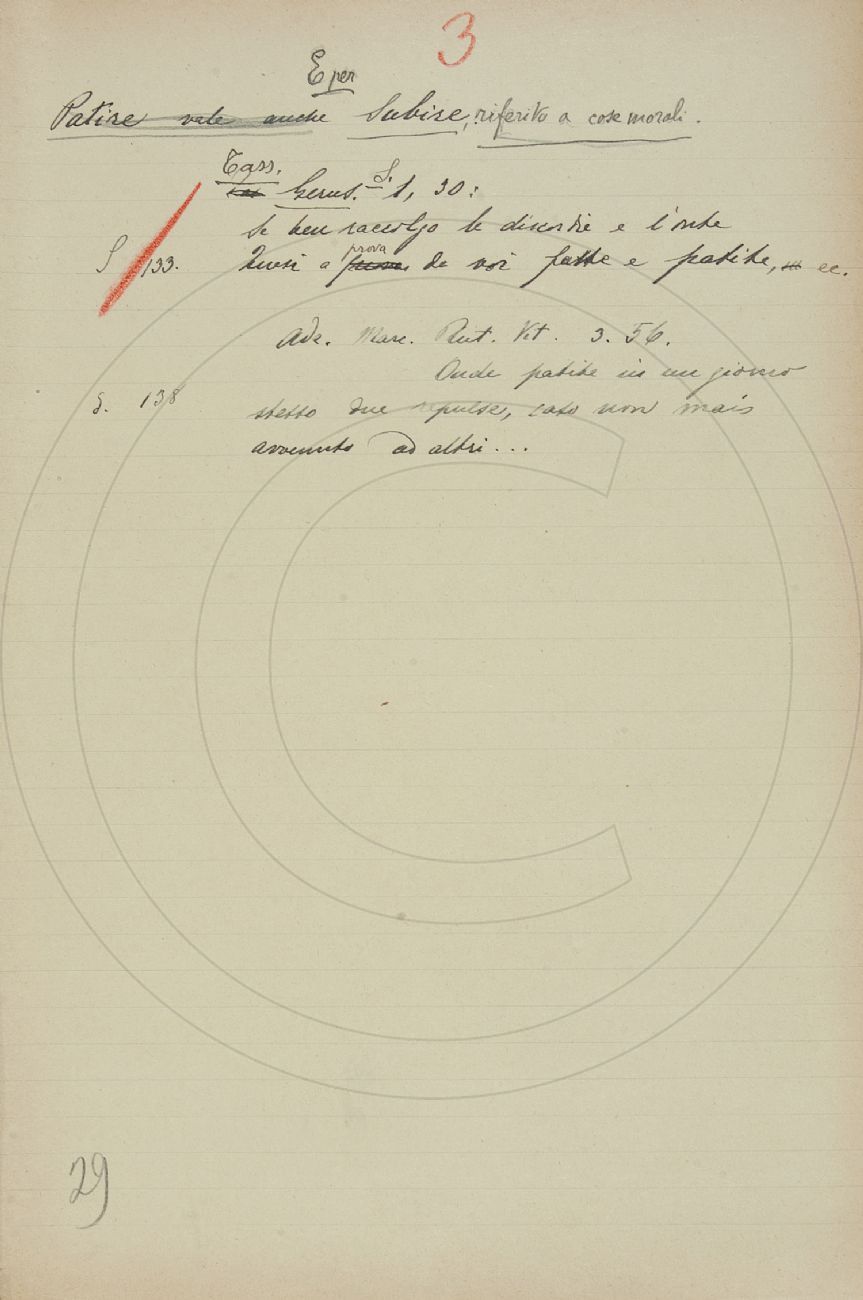 3
E per
Patire vale anche Subire, riferito a cose morali.
Tass.
Gerus. S. 5, 30:
Se ben raccolgo le discordie e l'onte
S 133. Quasi a prova da voi fatte e patite, ec.
Adr. Marc. Plut. Vit. 3. 56.
Onde patite in un giorno
S. 138 stesso due repulse, caso non mais
avvenuto ad altri...
29